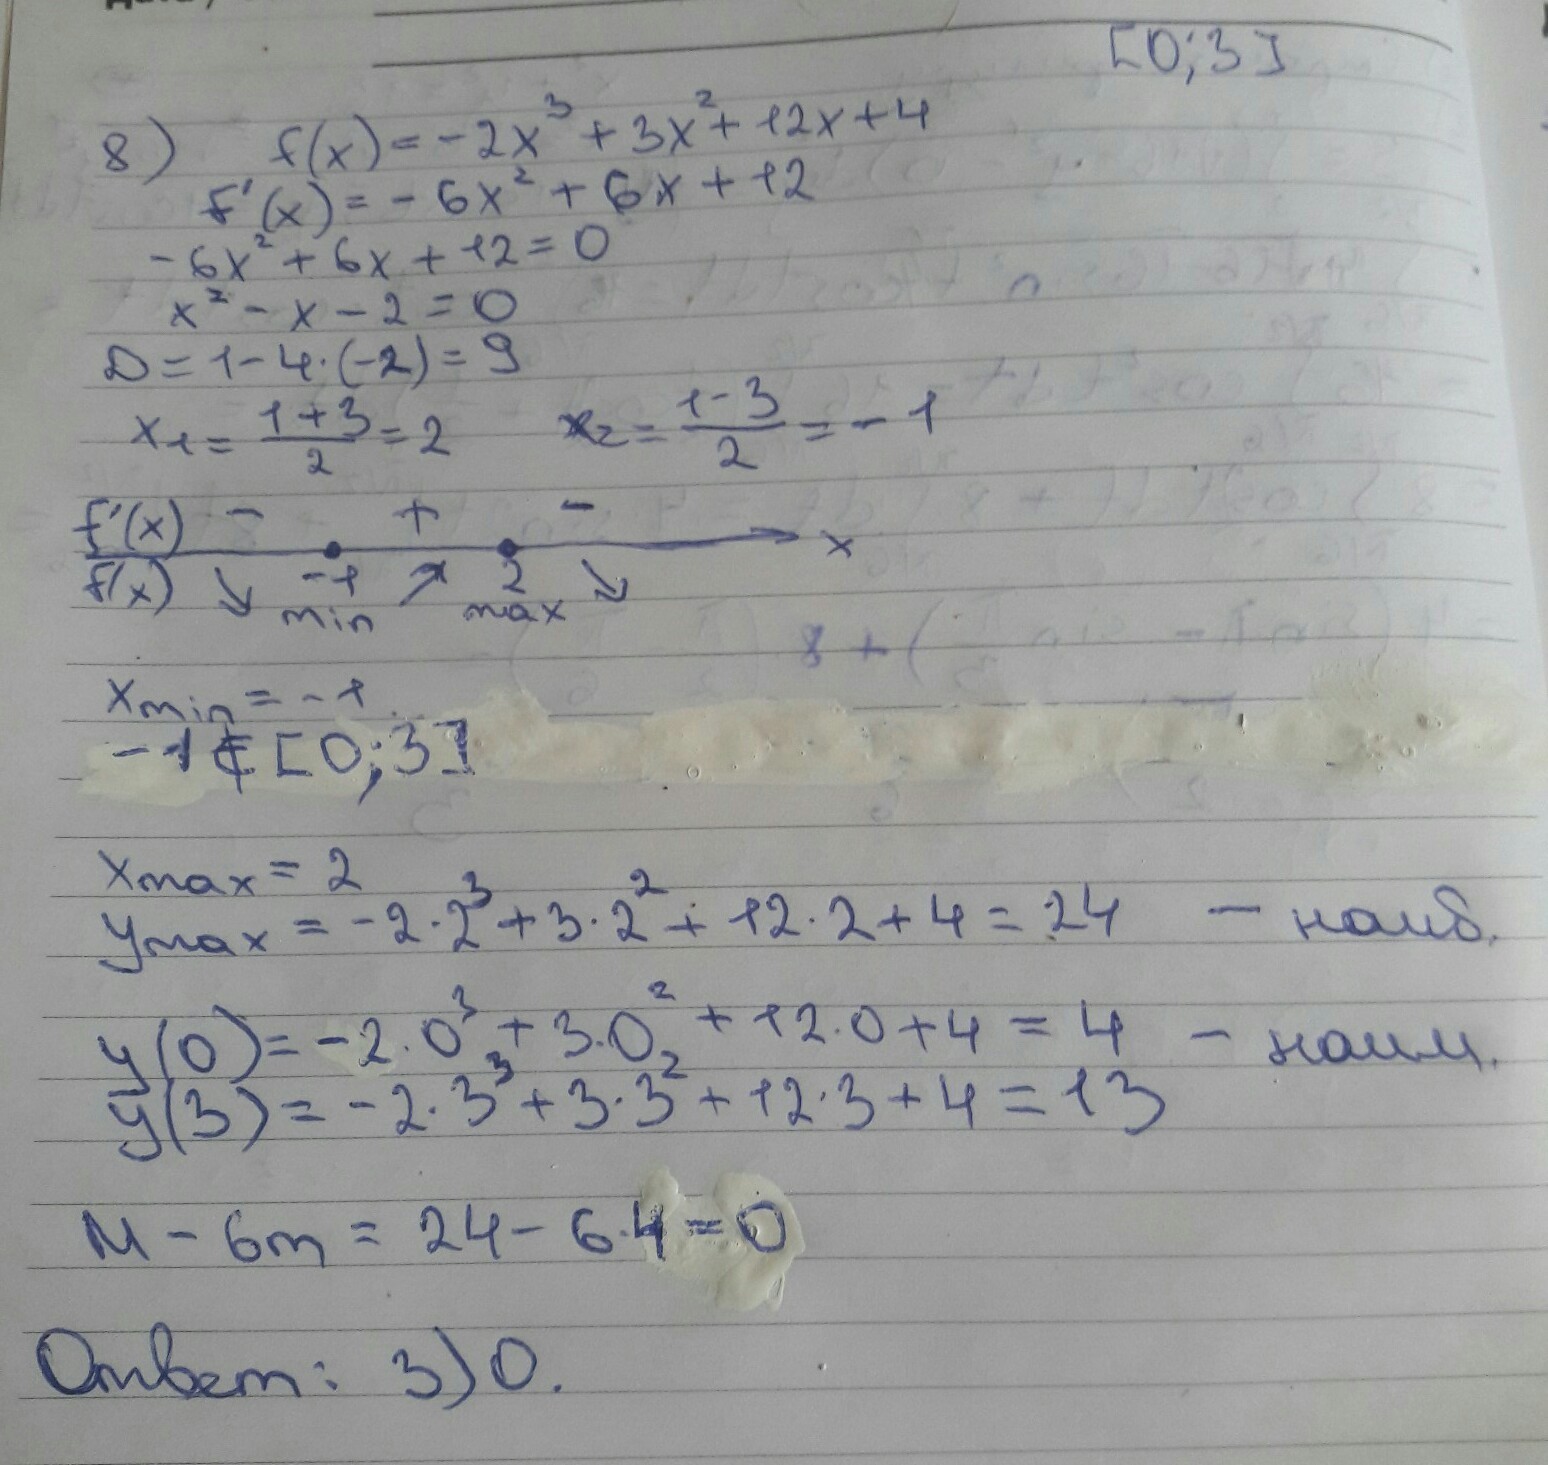 [0;3]
8) f(x)=-2x³+3x²+12x+4
f'(x)=-6x²+6x+12
-6x²+6x+12=0
x²-x-2=0
D=1-4·(-2)=9
x₁=(1+3)/2=2 x₂=(1-3)/2=-1
f'(x) - + -
x
f(x) ↘ -1 ↗ 2 ↘
min max
xmin=-1
-1∉[0;3]
xmax=2
ymax=-2·2³+3·2²+12·2+4=24 - наиб.
y(0)=-2·0³+3·0²+12·0+4=4 - наим.
y(3)=-2·3³+3·3²+12·3+4=13
M-6m=24-6·4=0
Ответ: 3)0.